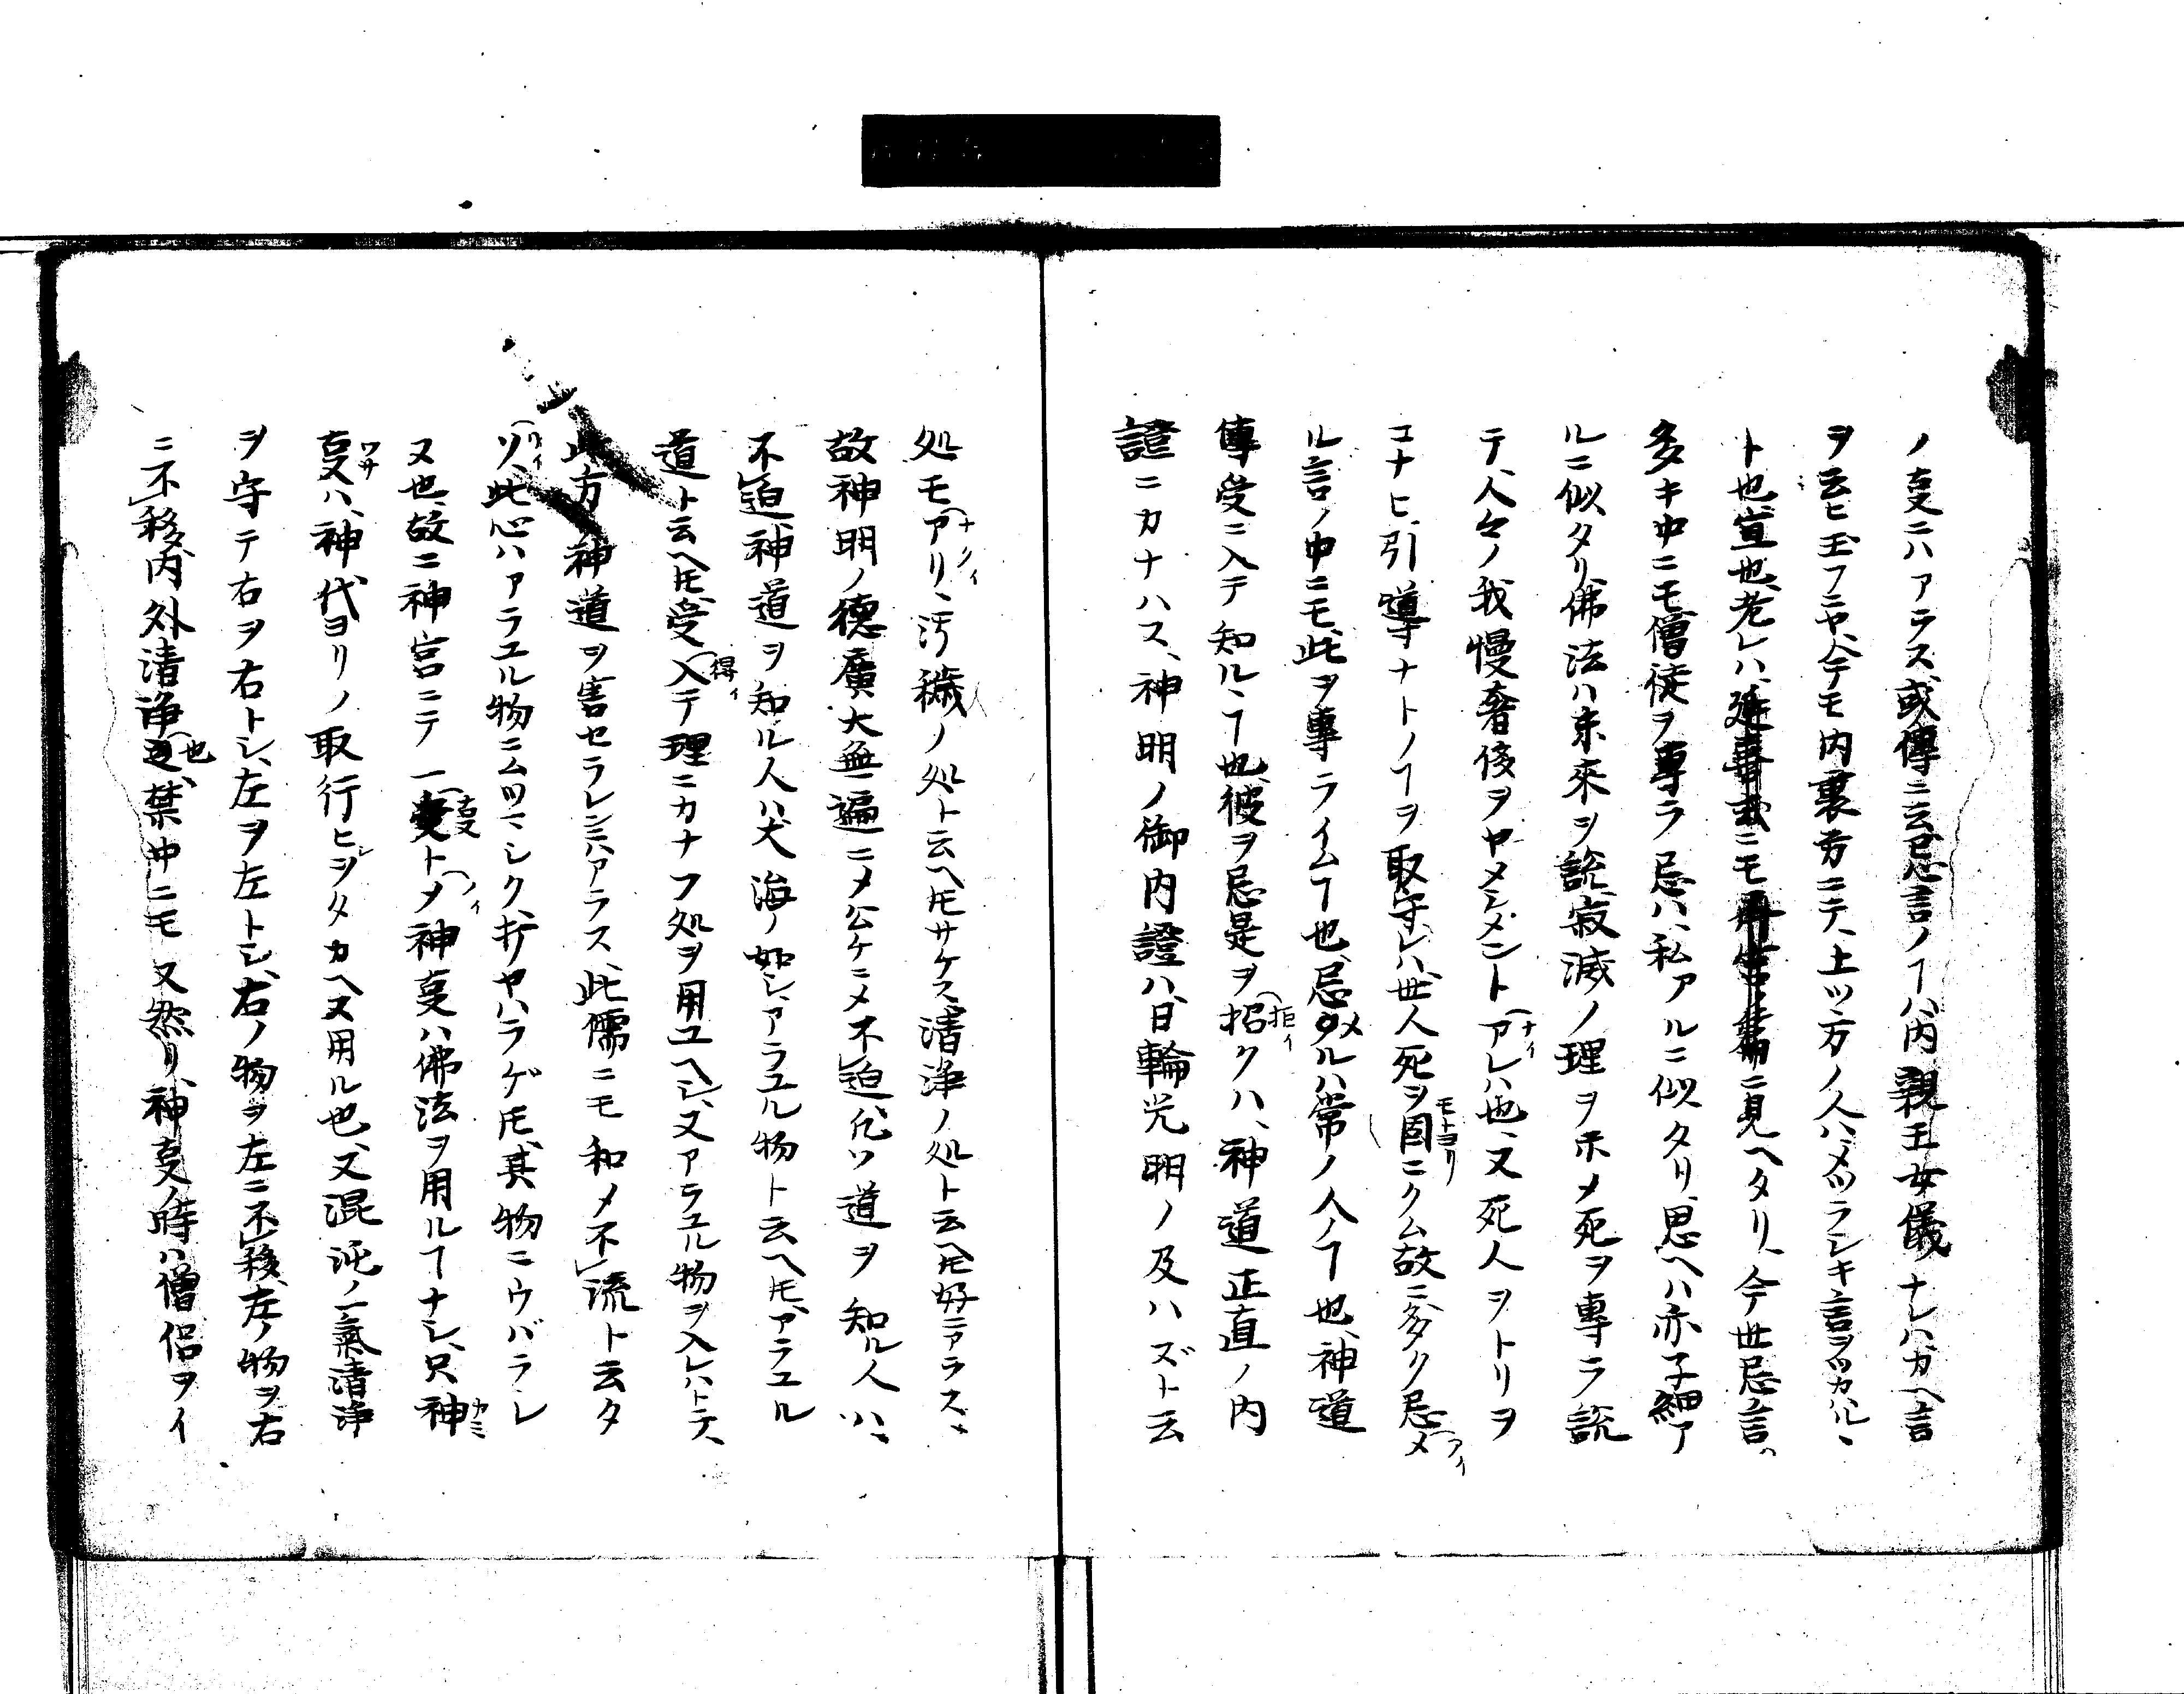 ノ叓ニハアラス、或傳ニ云、忌言ノヿハ、内親王女儀ナレハカヘ言
ヲ云ヒ玉フニヤ、今テモ内裏方ニテ、上ツ方ノ人ハ、メツラシキ言ヲツカハル、
ト也、宣也、老レハ、延喜式ニモ再宮篇ニ見ヘタリ、今世忌言、
多キ中ニモ僧徒ヲ專ラ忌ハ、私アルニ似タリ、思ヘハ亦子細ア
ルニ似タリ、佛法ハ未來ヲ説、寂滅ノ理ヲ示メ死ヲ專ラ説
テ、人々ノ我慢奢侈ヲヤメシメントアレ(ナイ)ハ也、又死人ヲトリヲ
コナヒ、引導ナトノヿヲ取守レハ、世人死ヲ固(モトヨリ)ニクム故ニ多ク忌メ(フイ)
ル言ノ中ニモ、此ヲ專ライムヿ也、忌メルハ常ノ人ノヿ也、神道
傳受ニ入テ知ルヿ也、彼ヲ忌是ヲ招(拒イ)クハ、神道正直ノ内
證ニカナハス、神明ノ御内證ハ、日輪光明ノ及ハズト云
処モアリ(ナクイ)、汚穢ノ処ト云ヘ𪜈サケス、清浄ノ処ト云ヘ𪜈好ニアラス、
故神明ノ德廣大無遍ニメ公ケニメ不迫、凡ソ道ヲ知ル人ハ、
不迫、神道ヲ知ル人ハ大海ノ如シ、アラユル物ト云ヘ𪜈、アラユル
道ト云ヘ𪜈受入(得イ)テ理ニカナフ処ヲ用ユヘシ、又アラユル物ヲ入レハトテ、
此方ノ神道ヲ害セラレンニハアラス、此儒ニモ和メ不流ト云タ
ソ(リイ)、此心ハアラユル物ニムツマシク、打ヤハラゲ𪜈、其物ニウバラレ
ヌ也、故ニ神宮ニテ一叓トメ(ノイ)神叓ハ佛法ヲ用ルヿナシ、只神(カミ)
叓(ワサ)ハ、神代ヨリノ取行ヒヲタカヘヌ用ル也、又混沌ノ一氣清浄
ヲ守テ右ヲ右トシ、左ヲ左トシ、右ノ物ヲ左ニ不移、左ノ物ヲ右
ニ不移、内外清浄也、禁中ニモ又然リ、神叓ノ時ハ僧侶ヲイ